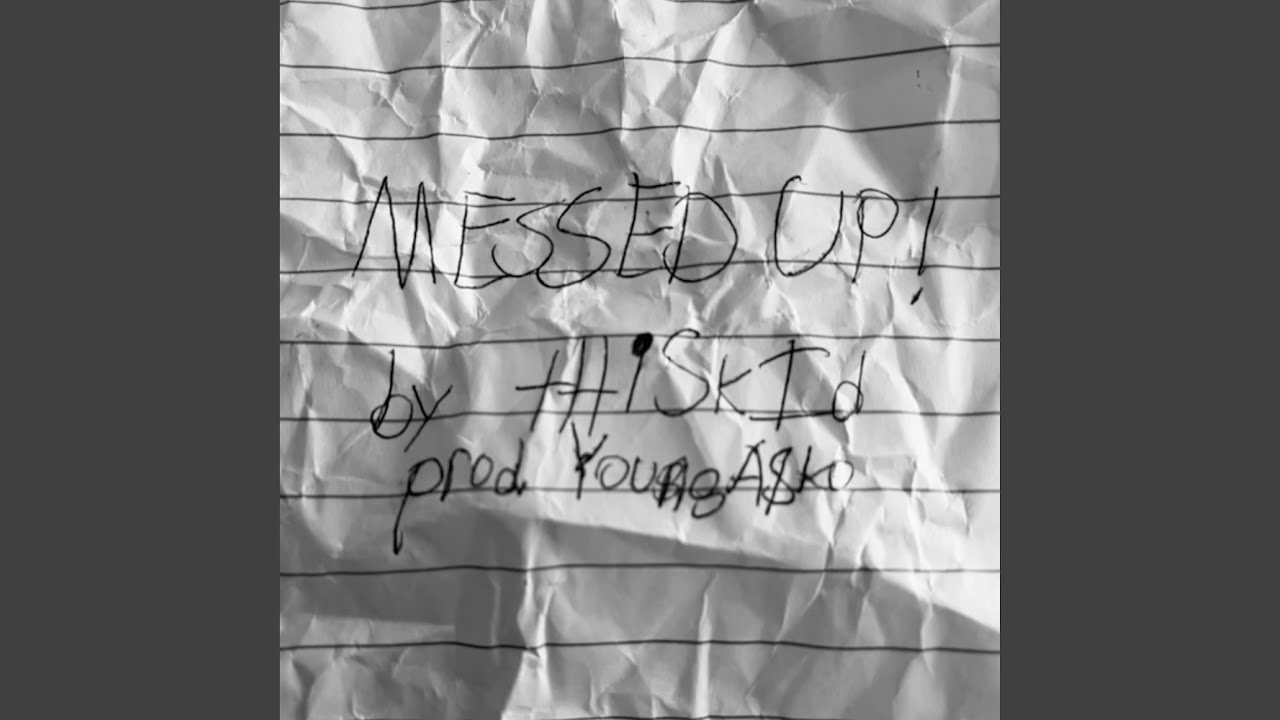 MESSED UP!
by tHiSkId
prod. YoungA$ko